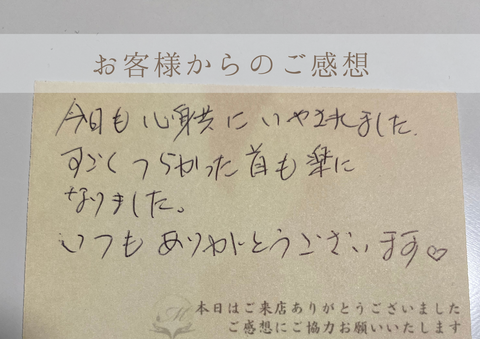 お客様からのご感想
今日も心身共にいやされました.
すごくつらかった首も楽に
なりました。
いつもありがとうございます♡
M
本日はご来店ありがとうございました
ご感想にご協力お願いいたします